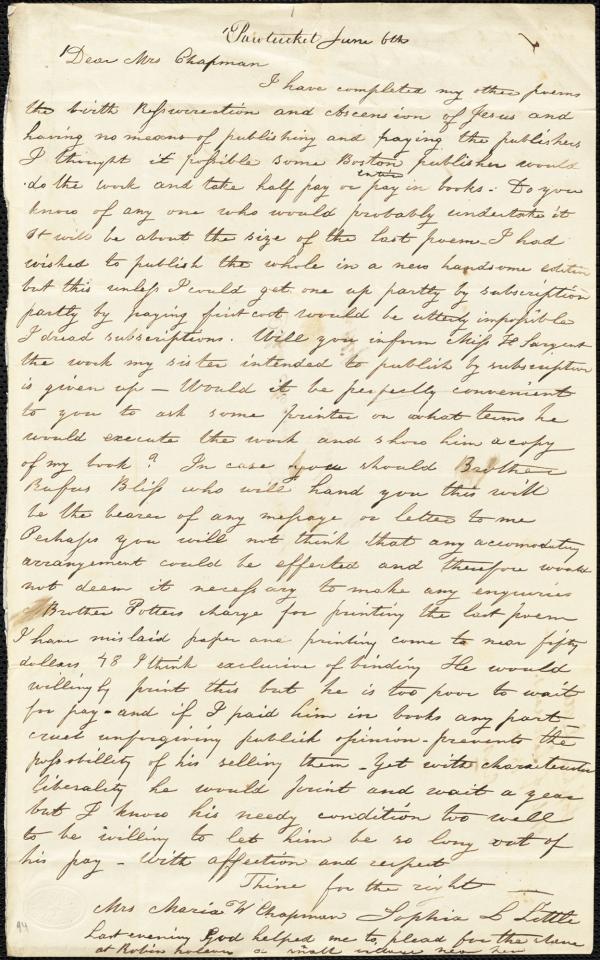 Pawtucket June 6th
Dear Mrs Chapman
I have completed my other poems
the birth Ressurrection and Ascension of Jesus and
having no means of publishing and paying the publishers
I thought it possible some Boston publisher would
do the work and take half pay or entire pay in books. Do you
know of any one who would probably undertake it
It will be about the size of the last poem. I had
wished to publish the whole in a new handsome edition
but this unless I could get one up partly by subscription
partly by paying first cost would be utterly impossible
I dread subscriptions. Will you inform Miss H Sargent
the work my sister intended to publish by subscription
is given up — Would it be perfectly convenient
to you to ask some printer on what terms he
would execute the work and show him a copy
of my book? In case you should Brother
Rufus Bliss who will hand you this will
be the bearer of any message or letter to me
Perhaps you will not think that any accomodating
arrangement could be effected and therefore would
not deem it necessary to make any enquiries
Brother Potters charge for printing the last poem
I have mislaid paper and printing come to near fifty
dollars 48 I think exclusive of binding He would
willingly print this but he is too poor to wait
for pay - and if I paid him in books any part -
cruel unforgiving publick opinion - prevents the
possibility of his selling them - Yet with characteristic
liberality he would print and wait a year
but I know his needy condition too well
to be willing to let him be so long out of
his pay - With affection and respect
Thine for the right —
Mrs Maria W Chapman Sophia L Little
Last evening God helped me to plead for the slave
at Robin a small village near here